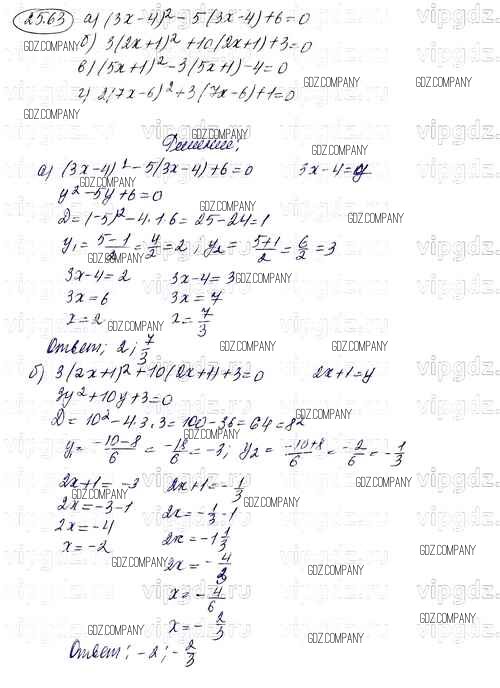 25.63 а) (3x-4)² - 5(3x-4)+6=0
б) 3(2x+1)² +10(2x+1)+3=0
в) (5x+1)²-3(5x+1)-4=0
г) 2(7x-6)²+3(7x-6)+1=0
Решение:
а) (3x-4)²-5(3x-4)+6=0 3x-4=y
y²-5y+6=0
D=(-5)²-4·1·6=25-24=1
y₁= (5-1)/2 = 4/2 =2; y₂= (5+1)/2 = 6/2 =3
3x-4=2 3x-4=3
3x=6 3x=7
x=2 x= 7/3
Ответ: 2; 7/3
б) 3(2x+1)²+10(2x+1)+3=0 2x+1=y
3y²+10y+3=0
D=10²-4·3·3=100-36=64=8²
y₁= (-10-8)/6 = -18/6 =-3; y₂= (-10+8)/6 = -2/6 = -1/3
2x+1=-3 2x+1=-1/3
2x=-3-1 2x=-1/3-1
2x=-4 2x=-1 1/3
x=-2 2x=-4/3
x=-4/6
x=-2/3
Ответ: -2; -2/3
GDZ.COMPANY
vipgdz.com